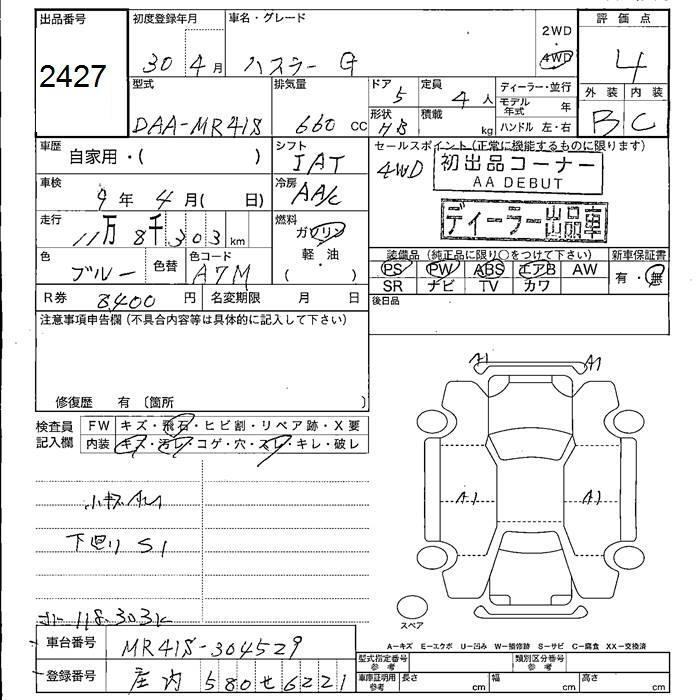 出品番号
2427
初度登録年月
30 4月
車名・グレード
ハスラー G
2WD
4WD
評価点
4
型式
DAA-MR41S
排気量
660 CC
ドア
5
形状
HB
定員
4人
積載
kg
ディーラー・並行
モデル年式 年
ハンドル 左・右
外装 内装
B C
車歴
自家用・( )
シフト
IAT
セールスポイント(正常に機能するものに限ります)
4WD
初出品コーナー
AA DEBUT
ディーラー出品車
車検
9年 4月( 日)
冷房
AAC
走行
11万8千303km
燃料
ガソリン
軽・油
( )
色
ブルー
色替
色コード
A7M
装備品(純正品に限り○をつけて下さい)
PS PW ABS エアB AW
SR ナビ TV カワ
新車保証書
有・無
R券 8400円
名変期限 月 日
後日品
注意事項申告欄(不具合内容等は具体的に記入して下さい)
修復歴 有〔箇所 〕
検査員記入欄
FW キズ・飛石・ヒビ割・リペア跡・X要
内装 キズ・汚レ・コゲ・穴・スレ・キレ・破レ
小キズAU
下廻り S1
118.303K
A1 A1
A1 A1
スペア
車台番号
MR41S-304529
登録番号
庄内 580 せ 6221
A-キズ E-エクボ U-凹み W-補修跡 S-サビ C-腐食 XX-交換済
型式指定番号 参考
類別区分番号 参考
車庫証明用 参考
長さ cm 幅 cm 高さ cm